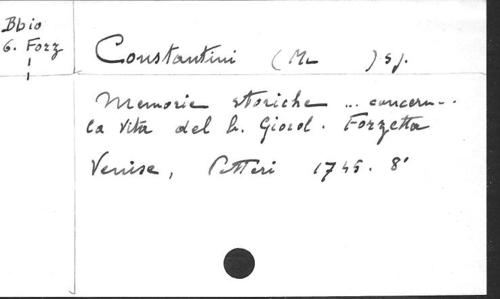 Bbio
G. Forz
Constantini (M )sj.
Memorie storiche ... concern..
la vita del b. Giord. Forzetta
Venise, Petteri 1745. 8°